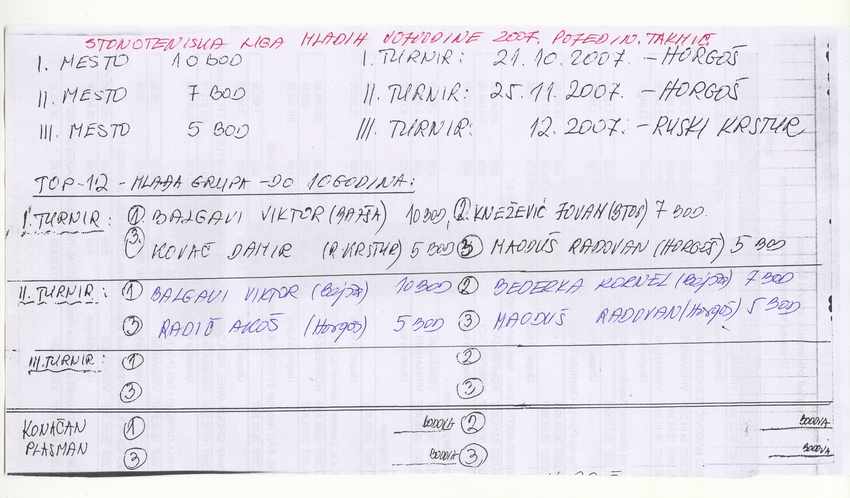 STONOTENISKA LIGA MLADIH VOJVODINE 2007. POJEDIN. TAKMIČ.
I. MESTO 10 BOD I. TURNIR: 21.10.2007. - HORGOŠ
II. MESTO 7 BOD II. TURNIR: 25.11.2007. - HORGOŠ
III. MESTO 5 BOD III. TURNIR: 12.2007. - RUSKI KRSTUR
TOP-12 - MLAĐA GRUPA - DO 10 GODINA:
I. TURNIR: 1. BALGAVI VIKTOR (BAJŠA) 10 BOD, 2. KNEŽEVIĆ JOVAN (STOB) 7 BOD.
3. KOVAČ DAMIR (R. KRSTUR) 5 BOD 3 MAODUŠ RADOVAN (HORGOŠ) 5 BOD
II. TURNIR: 1 BALGAVI VIKTOR (Bajša) 10 BOD 2 BEDERKA KORNEL (Bajša) 7 BOD
3 RADIČ AKOŠ (Horgoš) 5 BOD 3 MAODUŠ RADOVAN (Horgoš) 5 BOD
III. TURNIR: 1 2
3 3
KONAČAN 1 BODOVA 2 BODOVA
PLASMAN 3 BODOVA 3, BODOVA